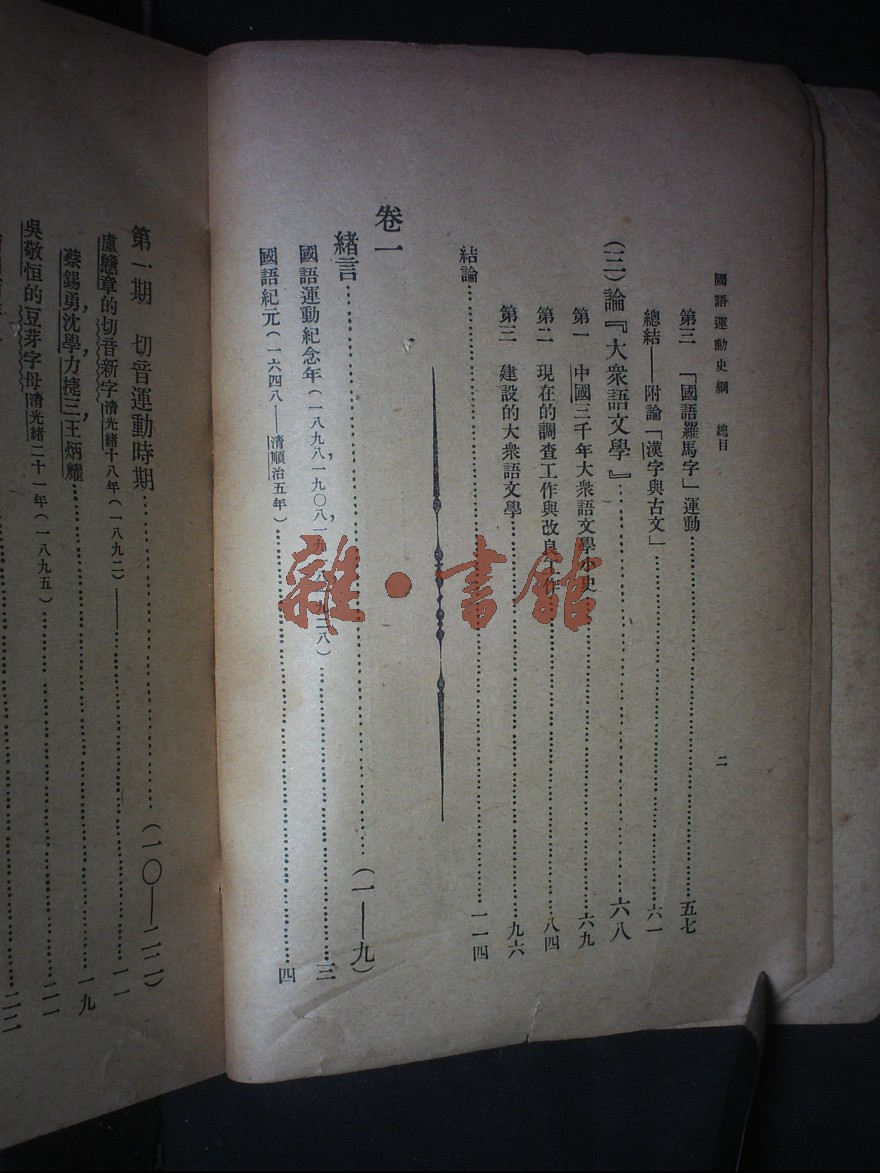 國語運動史綱　總目　二
第三　「國語羅馬字」運動……五七
總結——附論「漢字與古文」……六一
(三)論『大衆語文學』……六八
第一　中國三千年大衆語文學小史……六九
第二　現在的調查工作與改良工作……八四
第三　建設的大衆語文學……九六
結論……一一四
卷一
緒言……(一—九)
國語運動紀念年(一八九八，一九〇八，一九一八，一九二八)……三
國語紀元(一六四八——清順治五年)……四
第一期　切音運動時期……(一〇—二二)
盧戇章的切音新字清光緒十八年(一八九二)——……一一
蔡錫勇，沈學，力捷三，王炳耀……一九
吳敬恒的豆芽字母清光緒二十一年(一八九五)……二一
雜·書館